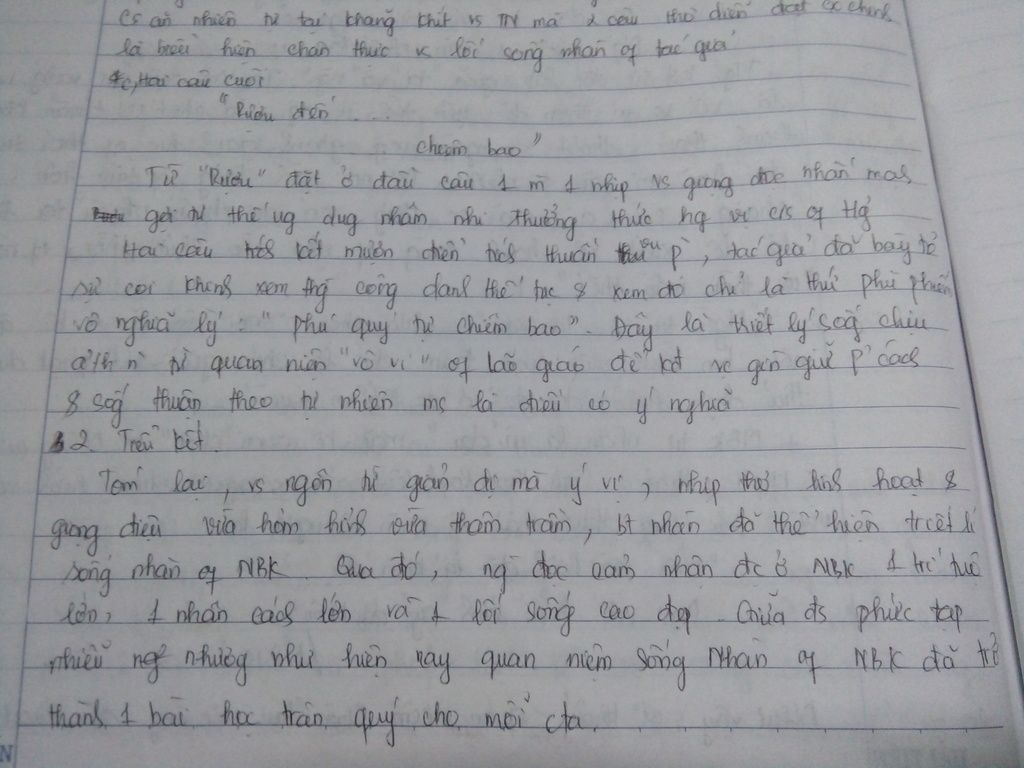 Cs an nhiên tự tại khăng khít vs TN mà 2 câu thơ diễn đạt cx chính
là biểu hiện chân thực vs lối sống nhàn of tác giả
c, Hai câu cuối
"Rượu đến ...
chiêm bao"
Từ "Rượu" đặt ở đầu câu 1 m 1 nhịp vs giọng đọc nhấn mạnh
gợi tư thế ung dung nhâm nhi thưởng thức hg vị c/s of Hg
Hai câu kết mượn điển tích thuần, tác giả đã bày tỏ
sự coi khinh xem thg công danh thế tục & xem đó chỉ là thứ phù phiếm
vô nghĩa lý: "phú quý tự chiêm bao". Đây là triết lý sống chịu
a/h từ quan niệm "vô vi" of lão giáo để vc gìn giữ p' cách
& sống thuận theo tự nhiên ms là điều có ý nghĩa
2 Tiểu kết.
Tóm lại, vs ngôn từ giản dị mà ý vị, nhịp thơ linh hoạt &
giọng điệu vừa hóm hỉnh vừa thâm trầm, bt nhàn đã thể hiện triết lí
sống nhàn of NBK. Qua đó, ng đọc cảm nhận đc ở NBK 1 trí tuệ
lớn, 1 nhân cách lớn và 1 lối sống cao đẹp. Giữa đs phức tạp
nhiễu nhương như hiện nay quan niệm sống Nhàn of NBK đã trở
thành 1 bài học trân quý cho mỗi cta.